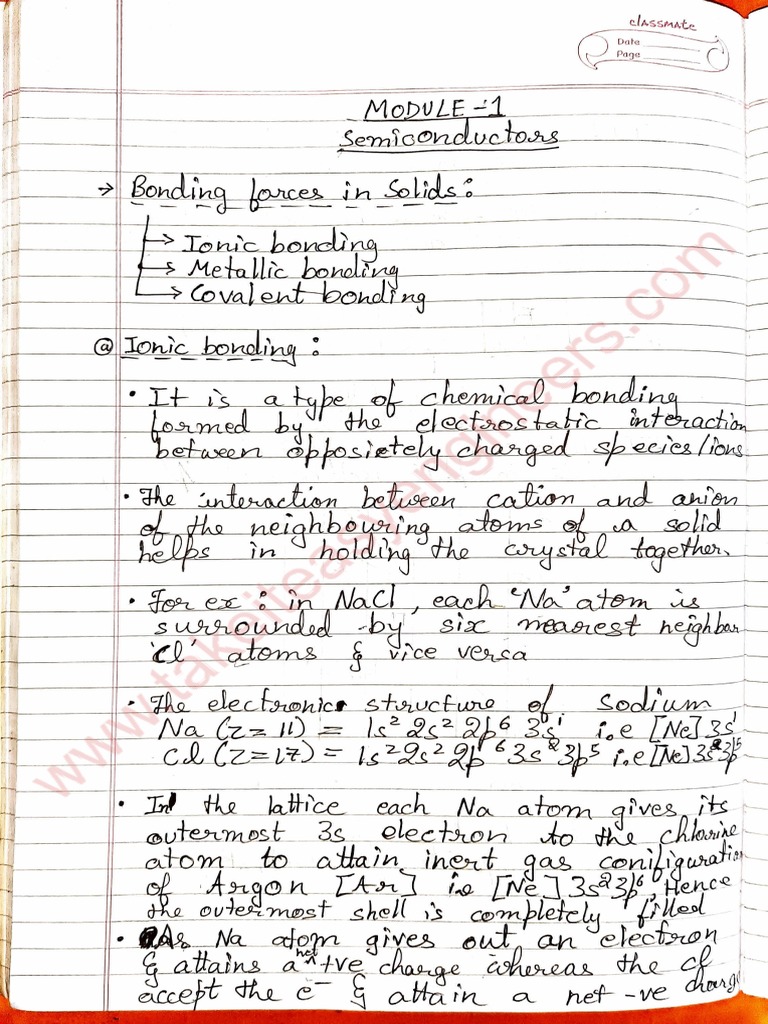 classmate
Date
Page
MODULE -1
Semiconductors
→ Bonding forces in Solids:
→ Ionic bonding
→ Metallic bonding
→ Covalent bonding
@ Ionic bonding:
• It is a type of chemical bonding
formed by the electrostatic interaction
between oppositely charged species/ions
• The interaction between cation and anion
of the neighbouring atoms of a solid
helps in holding the crystal together.
• For ex: in NaCl, each 'Na' atom is
surrounded by six nearest neighbour
'Cl' atoms & vice versa
• The electronic structure of Sodium
Na (z=11) = 1s² 2s² 2p⁶ 3s¹ i.e [Ne] 3s¹
Cl (z=17) = 1s² 2s² 2p⁶ 3s² 3p⁵ i.e [Ne] 3s² 3p⁵
• In the lattice each Na atom gives its
outermost 3s electron to the chlorine
atom to attain inert gas configuration
of Argon [Ar] i.e [Ne] 3s² 3p⁶. Hence
the outermost shell is completely filled
• As Na atom gives out an electron
& attains a net +ve charge whereas the Cl
accept the e⁻ & attain a net -ve charge
www.takeiteasyengineers.com